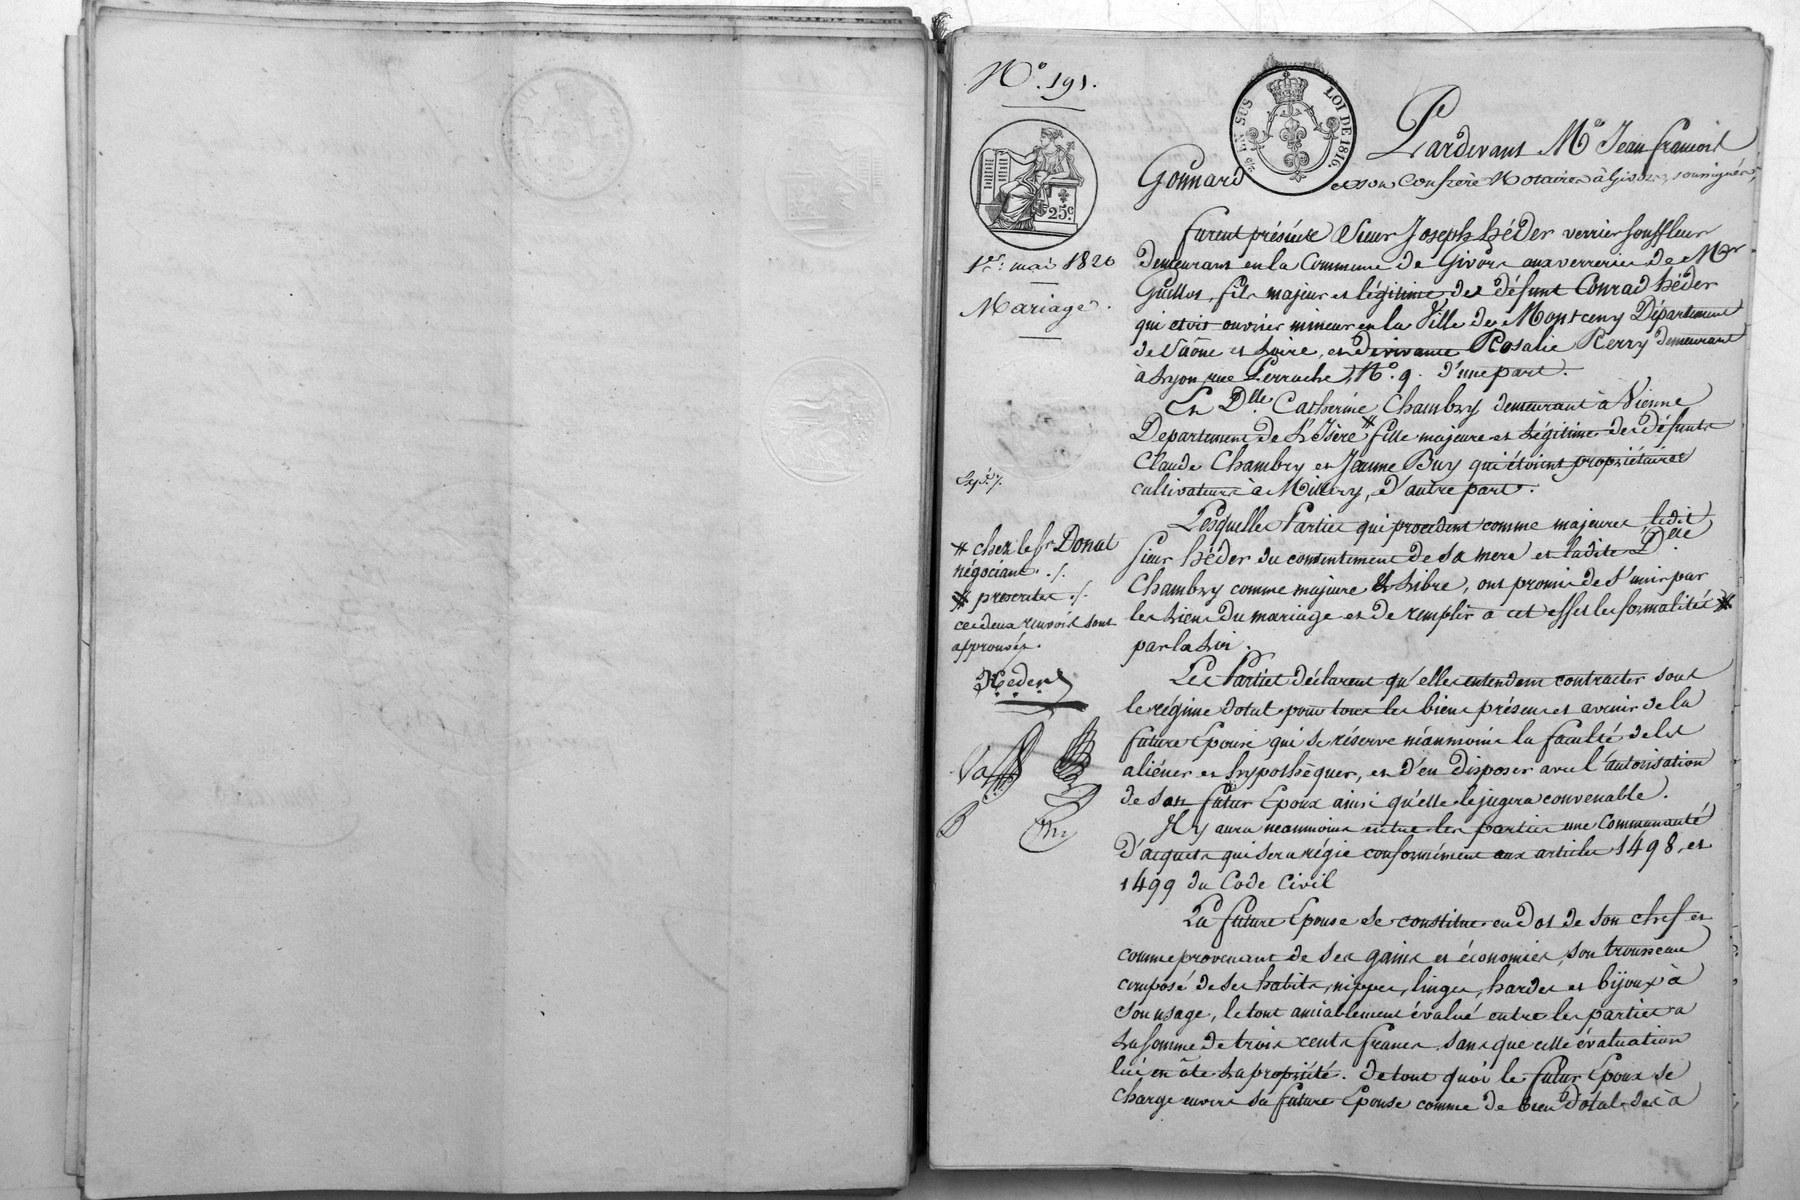 N.° 191.
EN SUS
LOI DE 1816.
25c.
1er. mai 1826
Mariage.
Expé. /.
* chez le Sr Donat
négociant ./.
* prescrites ./.
ces deux renvois sont
approuvés.
Héder
Pardevant Me Jean françois
Gonnard et son Confrère Notaires à Givors, soussignés,
furent présents Sieur Joseph héder verrier souffleur
demeurant en la Commune de Givors aux verreries de Mr
Guillot, fils majeur et légitime de défunt Conrad héder
qui étoit ouvrier mineur en la Ville de Montceny Département
de Saône et Loire, et de vivante Rosalie Kerry demeurant
à Lyon rue Perrache N.° 9. d'une part.
Et Dlle Catherine Chambry demeurant à Vienne
Departement de L'Isère * fille majeure et Légitime des défunts
Claude Chambry et Jeanne Buy qui étoient propriétaires
cultivateurs à Millery, d'autre part.
Lesquelles Parties qui procèdent comme majeures, ledit
Sieur héder du consentement de sa mere et ladite Dlle
Chambry comme majeure et Libre, ont promis de s'unir par
les Liens du mariage et de remplir à cet effet les formalités *
par la Loi.
Les Parties déclarent qu'elles entendent contracter sous
le régime dotal pour tous les biens présens et avenir de la
future Epouse qui se réserve néanmoins la faculté de les
aliéner et hypothèquer, et d'en disposer avec l'autorisation
de son futur Epoux ainsi qu'elle le jugera convenable.
Il y aura neanmoins entre les parties une Communauté
d'acquets qui sera régie conformément aux articles 1498, et
1499 du Code Civil
La future Epouse se constitue en Dot de son chef et
comme provenant de ses gains et économies, son trousseau
composé de ses habits, nippes, linges, hardes et bijoux à
son usage, le tout amiablement évalué entre les parties a
La somme de trois cents francs, sans que cette évaluation
lui en ôte la propriété. de tout quoi le futur Epoux se
charge envers sa future Epouse comme de bien Dotal, dès à